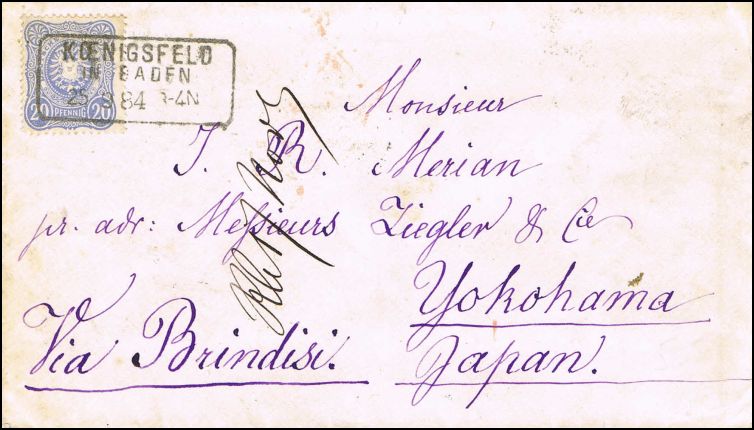 KŒNIGSFELD
IN BADEN
25 84 3-4N
20 PFENNIG 20
Monsieur
J. R. Merian
pr. adr: Messieurs Ziegler & Cie
Yokohama
Via Brindisi. Japan.